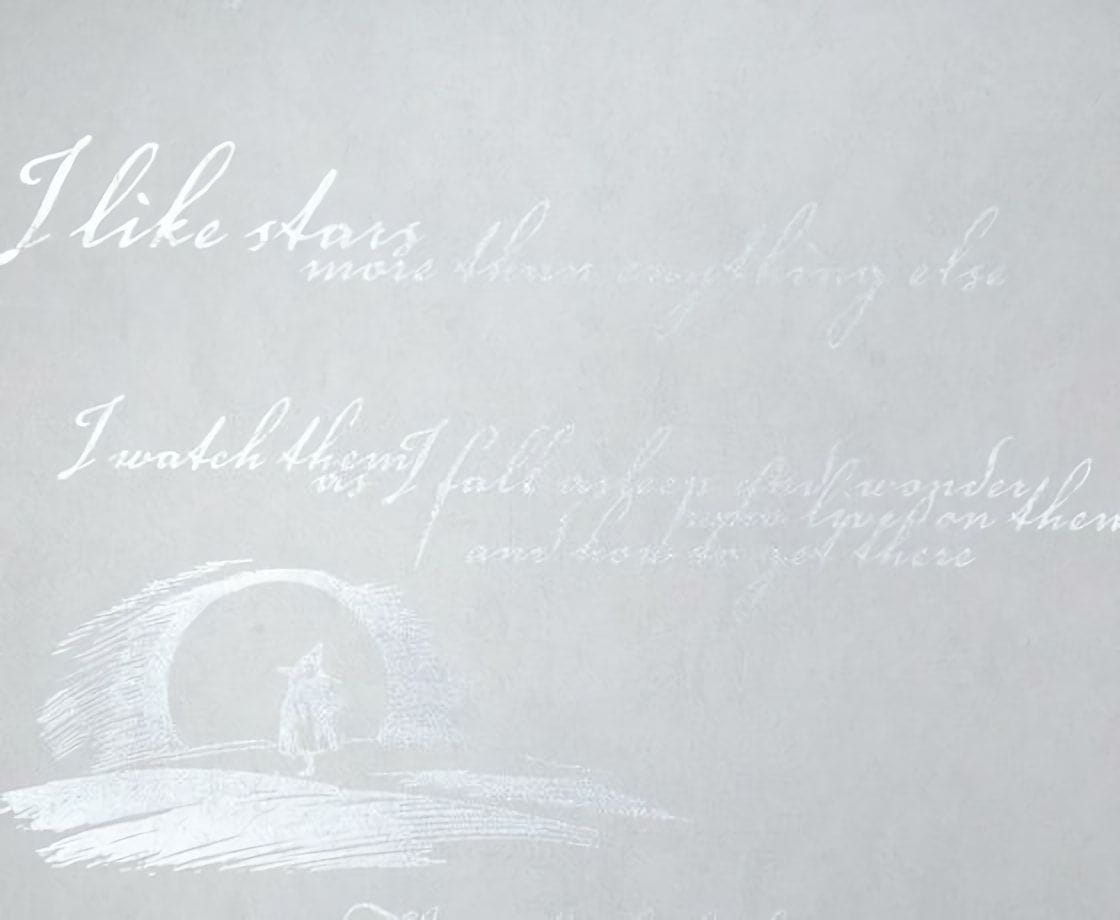 I like stars
more than anything else
I watch them
as I fall asleep and wonder
lives on them
and how to get there